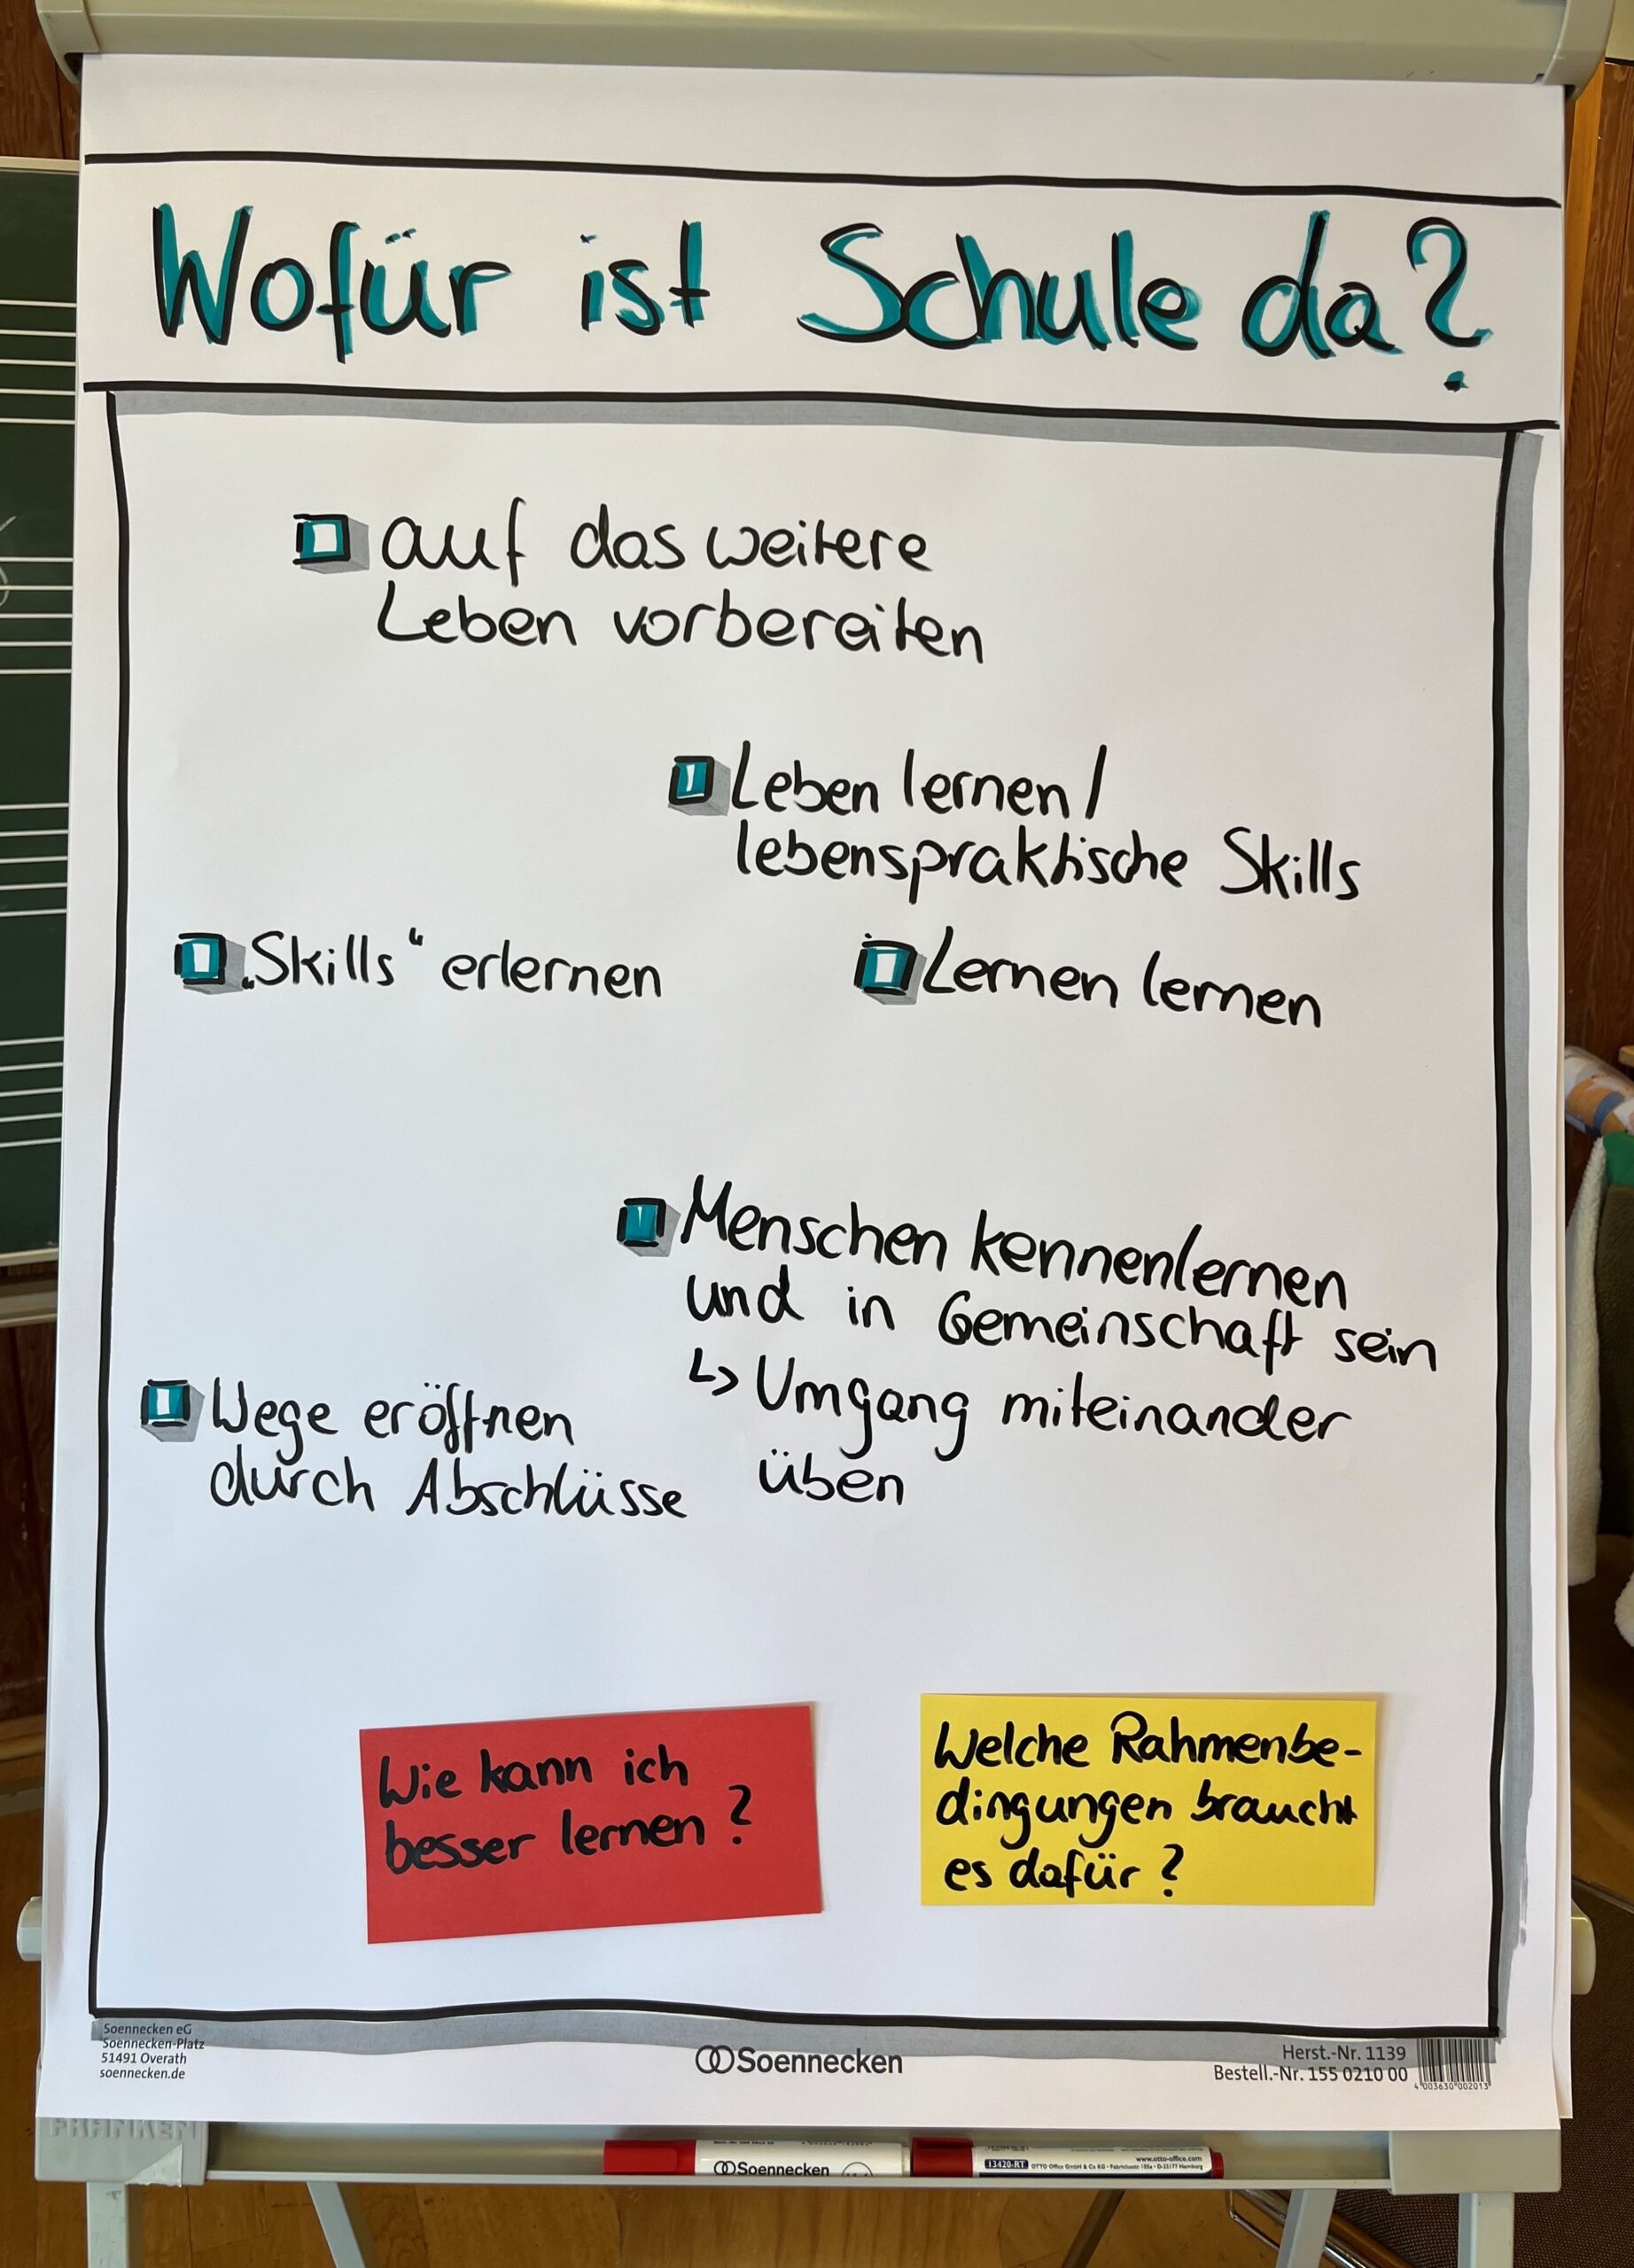 Wofür ist Schule da?
auf das weitere
Leben vorbereiten
Leben lernen/
lebenspraktische Skills
„Skills“ erlernen
Lernen lernen
Menschen kennenlernen
und in Gemeinschaft sein
↳ Umgang miteinander
üben
Wege eröffnen
durch Abschlüsse
Wie kann ich
besser lernen?
Welche Rahmenbe-
dingungen braucht
es dafür?
Soennecken eG
Soennecken-Platz
51491 Overath
soennecken.de
Soennecken
Herst.-Nr. 1139
Bestell.-Nr. 155 0210 00
4 003630 002013
FRANKEN
Soennecken
13420-RT
www.otto-office.com
OTTO Office GmbH & Co KG